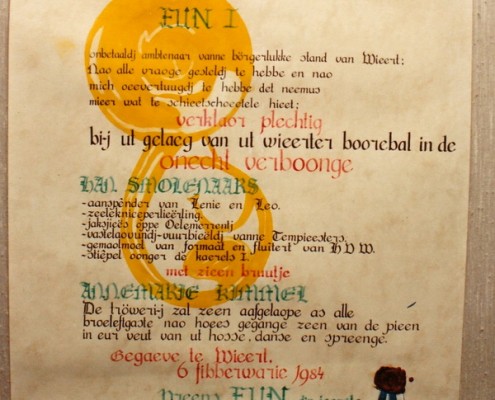 EUN I
onbetaaldj ambtenaar vanne börgerlukke stand van Wieert;
Nao alle vraoge gesteldj te hebbe en nao
mich oeevertuugdj te hebbe det neemus
mieer wat te schieetschoeetele hieet;
verklaor plechtig
bi-j ut gelaeg van ut wieerter boorebal in de
onecht verboonge
HAN SMOLENAARS
-aanspènder van Lenie en Leo.
-zeelekniceperlieërling.
-jaksjieës oppe Oelemerretj
-vastelaovundj-vuurbieeldj vanne Tempieesters.
-gemaolmoel van formaat en fluitert van H.V.W.
-Stiepel oonger de kaerels I.
met zieen bruutje
ANNEMARIE KUMMEL
De trówerij zal zeen aafgelaope as alle
broeleftgaste nao hoees gegange zeen van de pieen
in eur veut van ut hosse, danse en spreenge.
Gegaeve te Wieert,
6 fibberwarie 1984
Preens EUN